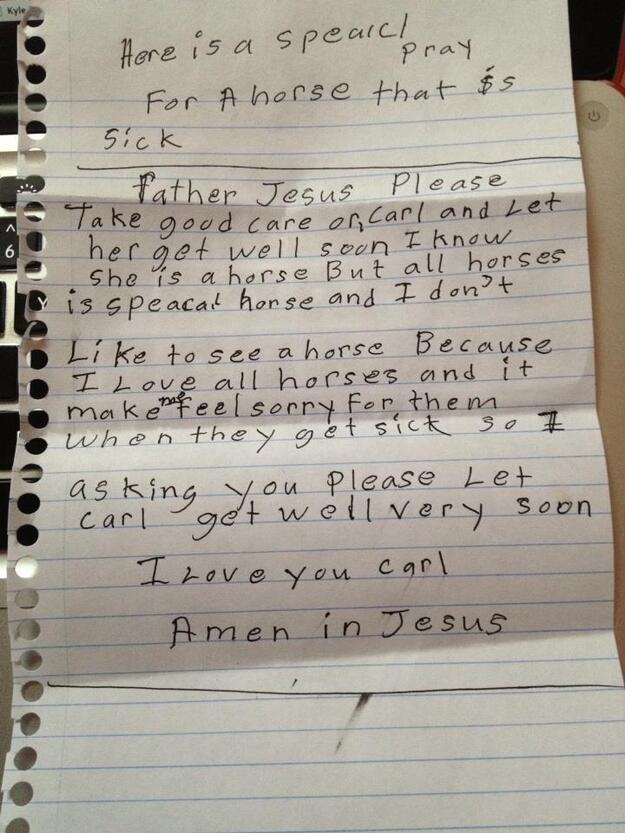 Kyle
Here is a spearcl
pray
For A horse that is
sick
Father Jesus Please
Take good care on Carl and Let
her get well soon I know
she is a horse But all horses
is speacal horse and I don't
Like to see a horse Because
I Love all horses and it
make me feel sorry For them
when they get sick so I
asking you please Let
carl get well very soon
I Love you carl
Amen in Jesus
^
6